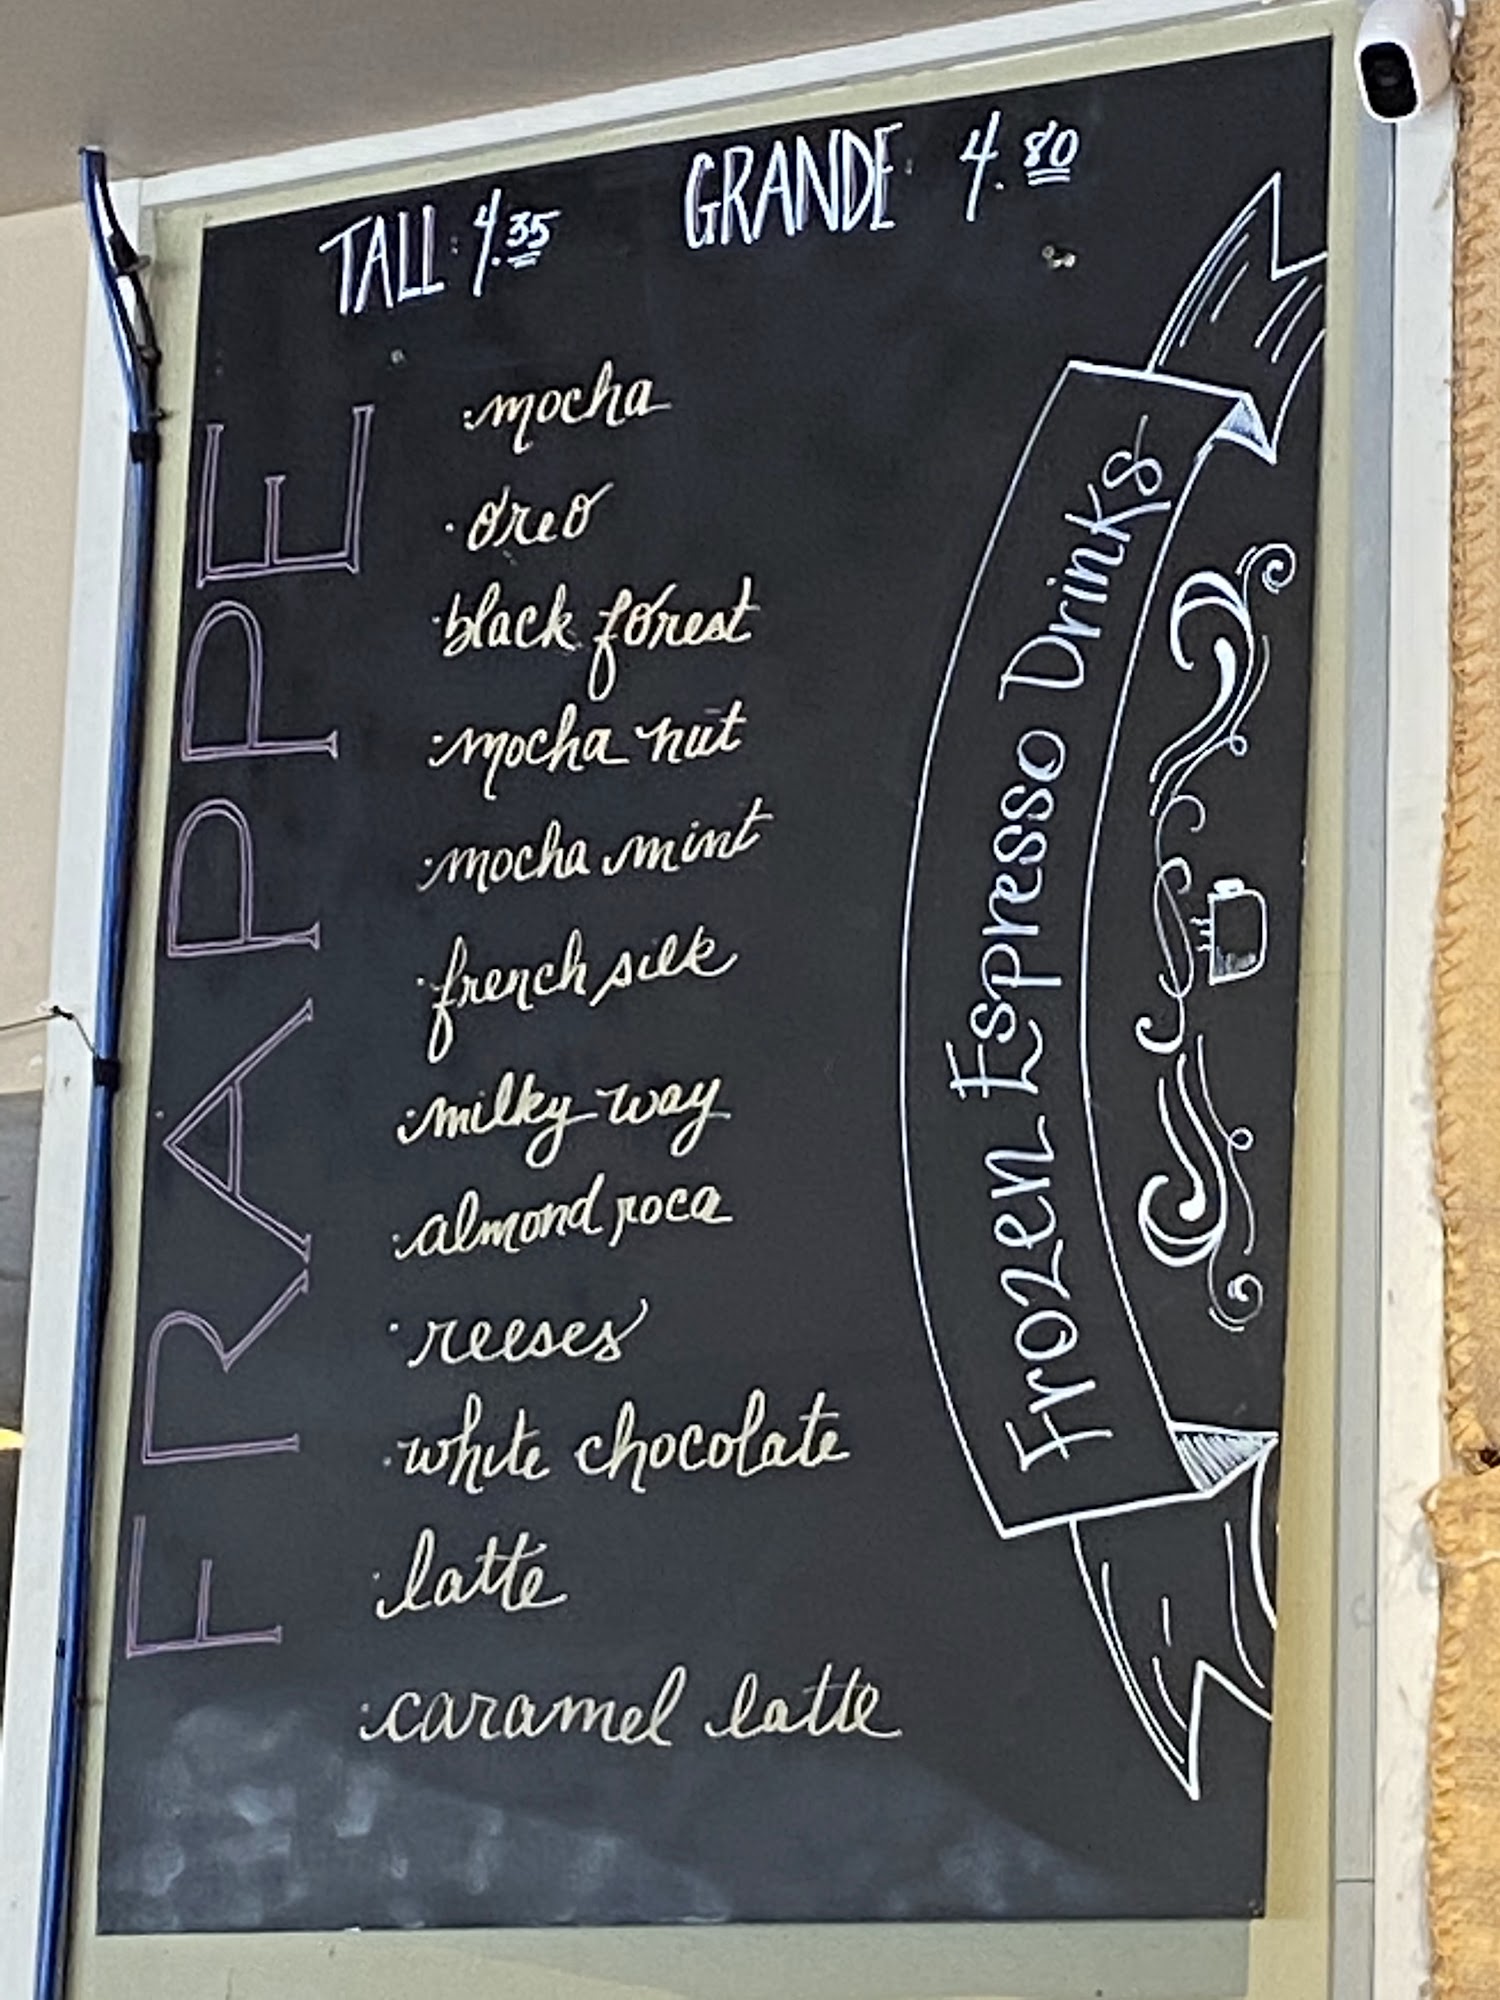 TALL: 4.35 GRANDE: 4.80
FRAPPE
·mocha
·oreo
·black forest
·mocha nut
·mocha mint
·french silk
·milky way
·almond roca
·reeses
·white chocolate
·latte
·caramel latte
Frozen Espresso Drinks